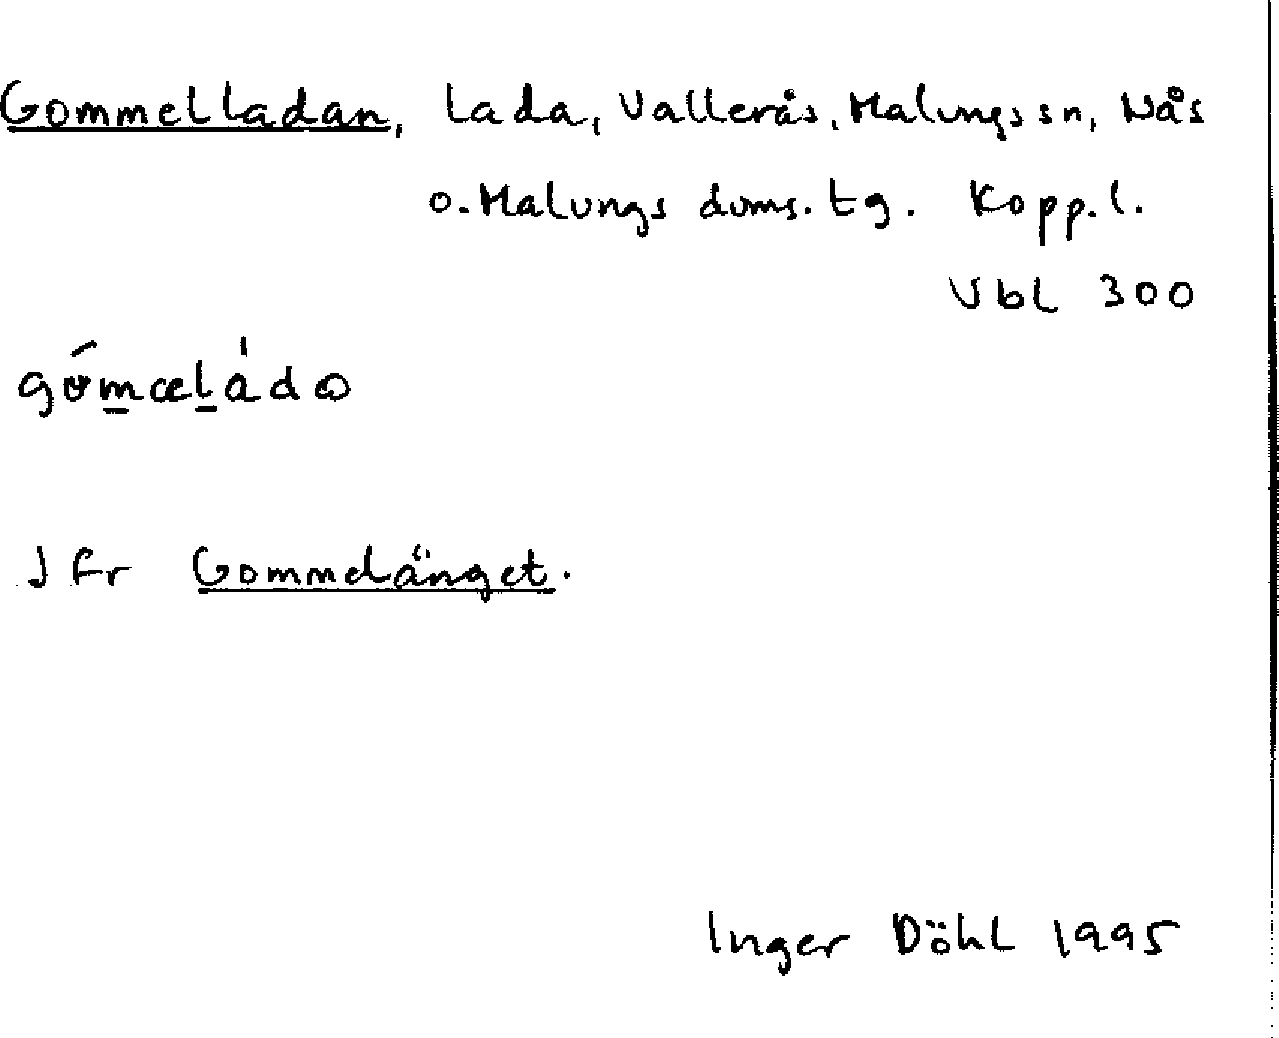 Gommelladan, Lada, Vallerås, Malungs sn, Nås
o. Malungs doms. tg. Kopp. l.
Vbl 300
Jfr Gommelänget.
Inger Döhl 1995